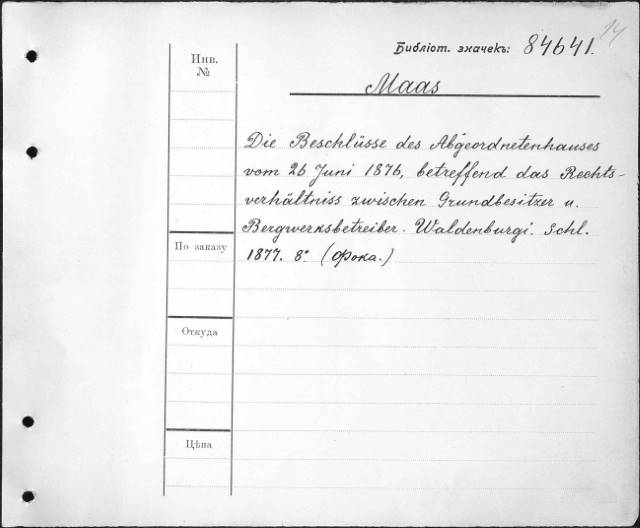 14
Библіот. значекъ: 84641.
Инв.
№
Maas
Die Beschlüsse des Abgeordnetenhauses
vom 26 Juni 1876, betreffend das Rechts-
verhältniss zwischen Grundbesitzer u.
Bergwerksbetreiber. Waldenburgi. Schl.
1877. 8° (Фока.)
По заказу
Откуда
Цѣна